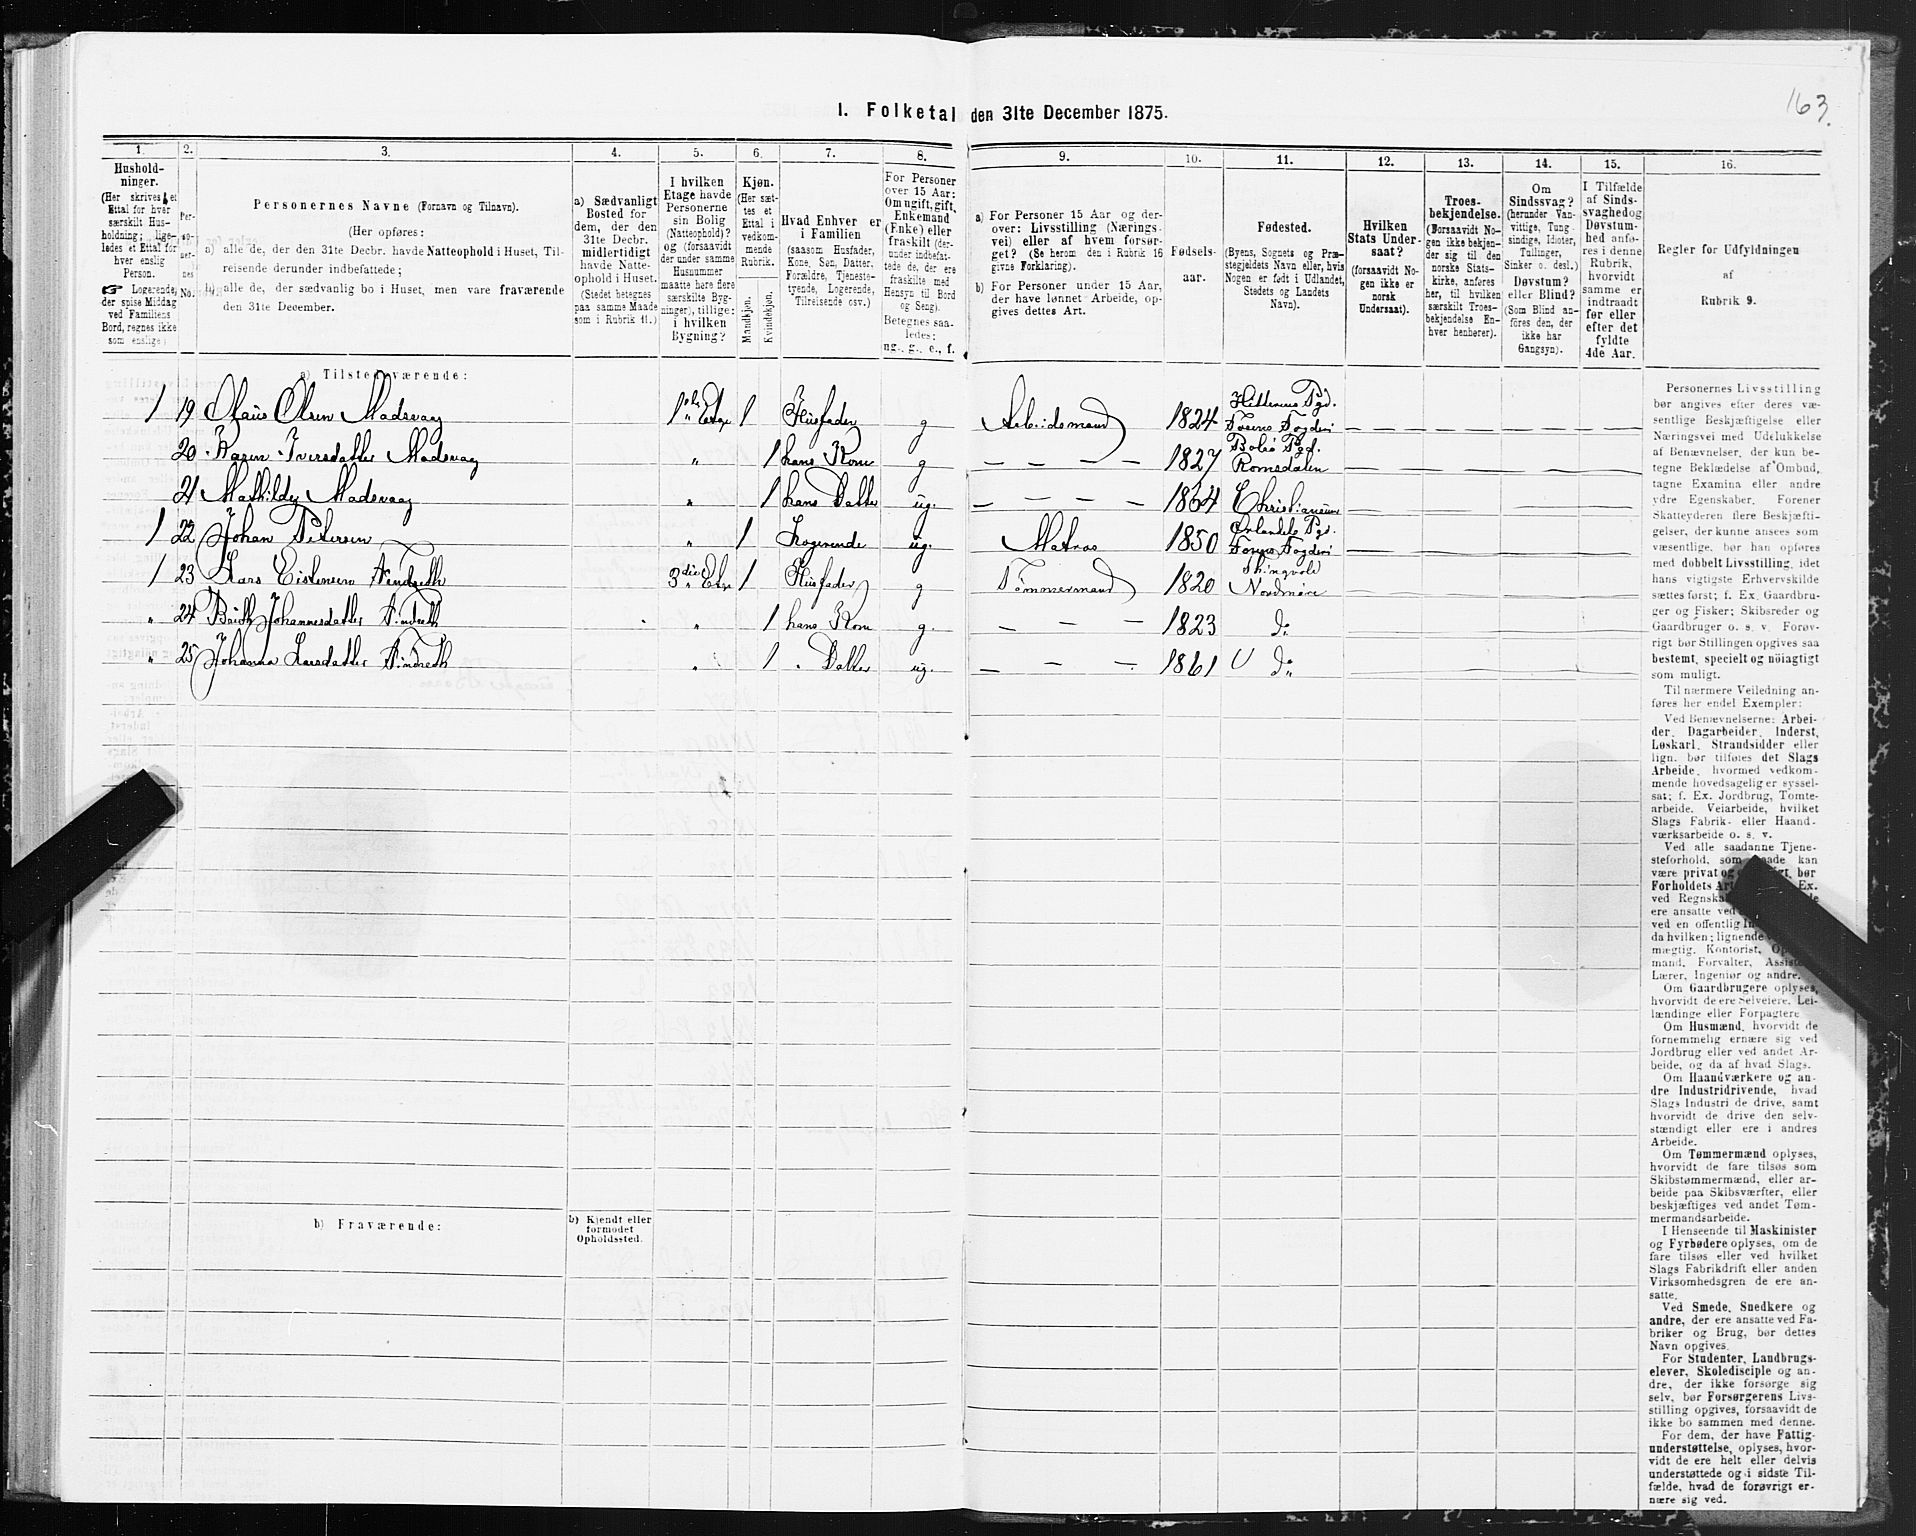 163.
I. Folketal den 31te December 1875.
1.
Hushold-
ninger.
(Her skrives et
Ettal for hver
særskilt Hus-
holdning; lige-
ledes et Ettal for
hver enslig
Person.
☞ Logerende,
der spise Middag
ved Familiens
Bord, regnes ikke
som enslige)
2.
Per-
so-
ner-
nes
No.
3.
Personernes Navne (Fornavn og Tilnavn).
(Her opføres:
a) alle de, der den 31te Decbr. havde Natteophold i Huset, Til-
reisende derunder indbefattede;
b) alle de, der sædvanlig bo i Huset, men vare fraværende
den 31te December.
4.
a) Sædvanligt
Bosted for
dem, der den
31te Decbr.
midlertidigt
havde Natte-
ophold i Huset.
(Stedet betegnes
paa samme Maade
som i Rubrik 11.)
5.
I hvilken
Etage havde
Personerne
sin Bolig
(Natteophold)?
og (forsaavidt
der under samme
Husnummer
maatte høre flere
særskilte Byg-
ninger), tillige:
i hvilken
Bygning?
6.
Kjøn.
(Her sæt-
tes et
Ettal i
vedkom-
mende
Rubrik.
Mandkjøn.
Kvindekjøn.
7.
Hvad Enhver er
i Familien
(saasom Husfader,
Kone, Søn, Datter,
Forældre, Tjeneste-
tyende, Logerende,
Tilreisende osv.)
8.
For Personer
over 15 Aar:
Om ugift, gift,
Enkemand
(Enke) eller
fraskilt (der-
under indbefat-
tede de, der ere
fraskilte med
Hensyn til Bord
og Seng).
Betegnes saa-
ledes:
ug., g., e., f.
9.
a) For Personer 15 Aar og der-
over: Livsstilling (Nærings-
vei) eller af hvem forsør-
get? (Se herom den i Rubrik 16
givne Forklaring).
b) For Personer under 15 Aar,
der have lønnet Arbeide, op-
gives dettes Art.
10.
Fødsels-
aar.
11.
Fødested.
(Byens, Sognets og Præ-
stegjeldets Navn eller, hvis
Nogen er født i Udlandet,
Stedets og Landets
Navn).
12.
Hvilken
Stats Under-
saat?
(forsaavidt No-
gen ikke er
norsk
Undersaat).
13.
Troes-
bekjendelse.
(Forsaavidt No-
gen ikke bekjen-
der sig til den
norske Stats-
kirke, anføres
her, til hvilken
særskilt Troes-
bekjendelse En-
hver henhører).
14.
Om
Sindssvag?
(herunder Van-
vittige, Tung-
sindige, Idioter,
Tullinger,
Sinker o. desl.)
Døvstum?
eller Blind?
(Som Blind an-
føres den, der
ikke har
Gangsyn).
15.
I Tilfælde
af Sinds-
svaghed og
Døvstum-
hed anfø-
res i denne
Rubrik,
hvorvidt
samme er
indtraadt
før eller
efter det
fyldte
4de Aar.
16.
Regler for Udfyldningen
af
Rubrik 9.
a) Tilstedeværende:
1 19 Olaus Olsen Madsvaag 1ste Etge 1 Husfader g Arbeidsmand 1824 Hitterens Pgd. Fosens Fogderi
20 Karen Iversdatter Madsvaag „ 1 hans Kone g — — — — 1827 Bolsø Pgd. Romsdalen
21 Mathilde Madsvaag „ 1 hans Datter ug. — — — — 1864 Christiansund
1 22 Johan Petersen „ 1 Logerende ug. Matros 1850 Ørlandets Pgd. Fosens Fogderi
1 23 Lars Eistensen 3die Etge 1 Husfader g Tømmermand 1820 Thingvold Nordmøre
„ 24 Johannesdatter „ 1 hans Kone g. — — — 1823 do
„ 25 Johanna Larsdatter „ 1 „ Datter ug — — — — 1861 do
b) Fraværende:
b) Kjendt eller
formodet
Opholdssted.
Personernes Livsstilling
bør angives efter deres væ-
sentlige Beskjæftigelse eller
Næringsvei med Udelukkelse
af Benævnelser, der kun be-
tegne Beklædelse af Ombud,
tagne Examina eller andre
ydre Egenskaber. Forener
Skatteyderen flere Beskjæfti-
gelser, der kunne ansees som
væsentlige, bør han opføres
med dobbelt Livsstilling, idet
hans vigtigste Erhvervskilde
sættes først; f. Ex. Gaardbru-
ger og Fisker; Skibsreder og
Gaardbruger o. s. v. Forøv-
rigt bør Stillingen opgives saa
bestemt, specielt og nöiagtigt
som muligt.
Til nærmere Veiledning an-
føres her endel Exempler:
Ved Benævnelserne: Arbei-
der, Dagarbeider, Inderst,
Løskarl, Strandsidder eller
lign. bør tilføies det Slags
Arbeide, hvormed vedkom-
mende hovedsagelig er syssel-
sat; f. Ex. Jordbrug, Tomte-
arbeide, Veiarbeide, hvilket
Slags Fabrik- eller Haand-
værksarbeide o. s. v.
Ved alle saadanne Tjene-
steforhold, som kan
være privat og bør
Forholdets Art Ex.
ved Regnska
ere ansatte ved
ved en offentlig In
da hvilken; lignende
mægtig, Kontorist, Op
mand, Forvalter, Assist
Lærer, Ingeniør og andre.
Om Gaardbrugere oplyses,
hvorvidt de ere Selveiere, Lei-
lændinge eller Forpagtere
Om Husmænd, hvorvidt de
fornemmelig ernære sig ved
Jordbrug eller ved andet Ar-
beide, og da af hvad Slags.
Om Haandværkere og an-
dre Industridrivende, hvad
Slags Industri de drive, samt
hvorvidt de drive den selv-
stændigt eller ere i andres
Arbeide.
Om Tømmermænd oplyses,
hvorvidt de fare tilsøs som
Skibstømmermænd, eller ar-
beide paa Skibsværfter, eller
beskjæftiges ved andet Tøm-
mermandsarbeide.
I Henseende til Maskinister
og Fyrbødere oplyses, om de
fare tilsøs eller ved hvilket
Slags Fabrikdrift eller anden
Virksomhedsgren de ere an-
satte.
Ved Smede, Snedkere og
andre, der ere ansatte ved Fa-
briker og Brug, bør dettes
Navn opgives.
For Studenter, Landbrugs-
elever, Skoledisciple og an-
dre, der ikke forsørge sig
selv, bør Forsørgerens Livs-
stilling opgives, forsaavidt de
ikke bo sammen med denne.
For dem, der have Fattig-
understøttelse, oplyses, hvor-
vidt de ere helt eller delvis
understøttede og i sidste Til-
fælde, hvad de forøvrigt er-
nære sig ved.